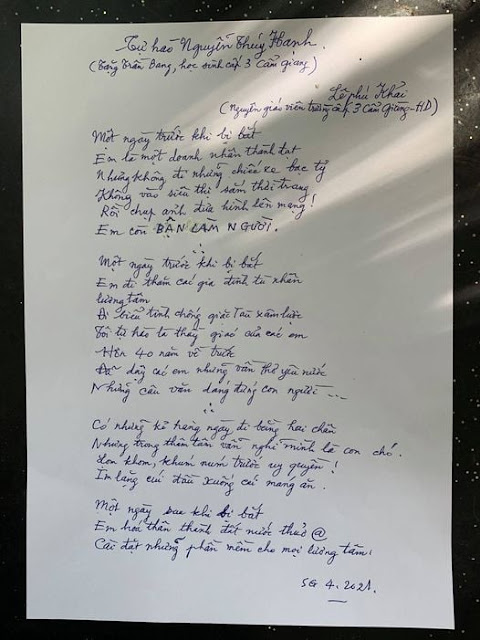 Tự hào Nguyễn Thúy Hạnh.
(Tặng Trần Bang, học sinh cấp 3 Cẩm Giàng)
Lê phú Khải
(Nguyên giáo viên trường cấp 3 Cẩm Giàng-HD)
Một ngày trước khi bị bắt
Em là một doanh nhân thành đạt
Nhưng không đi những chiếc xe bạc tỷ
Không vào siêu thị sắm thời trang
Rồi chụp ảnh đưa hình lên mạng!
Em còn BẬN LÀM NGƯỜI.
Một ngày trước khi bị bắt
Em đi thăm các gia đình tù nhân
lương tâm
Đi biểu tình chống giặc Tàu xâm lược
Tôi tự hào là thầy giáo của các em
Hơn 40 năm về trước
Đã dạy các em những vần thơ yêu nước
Những câu văn dáng đứng con người ...
Có những kẻ hàng ngày đi bằng hai chân
Nhưng trong thâm tâm vẫn nghĩ mình là con chó.
Lom khom, khúm núm trước uy quyền!
Im lặng cúi đầu xuống cái máng ăn.
Một ngày sau khi bị bắt
Em hoá thân thành đất nước thuở @
Cài đặt những phần mềm cho mọi lương tâm!
SG 4.2021.